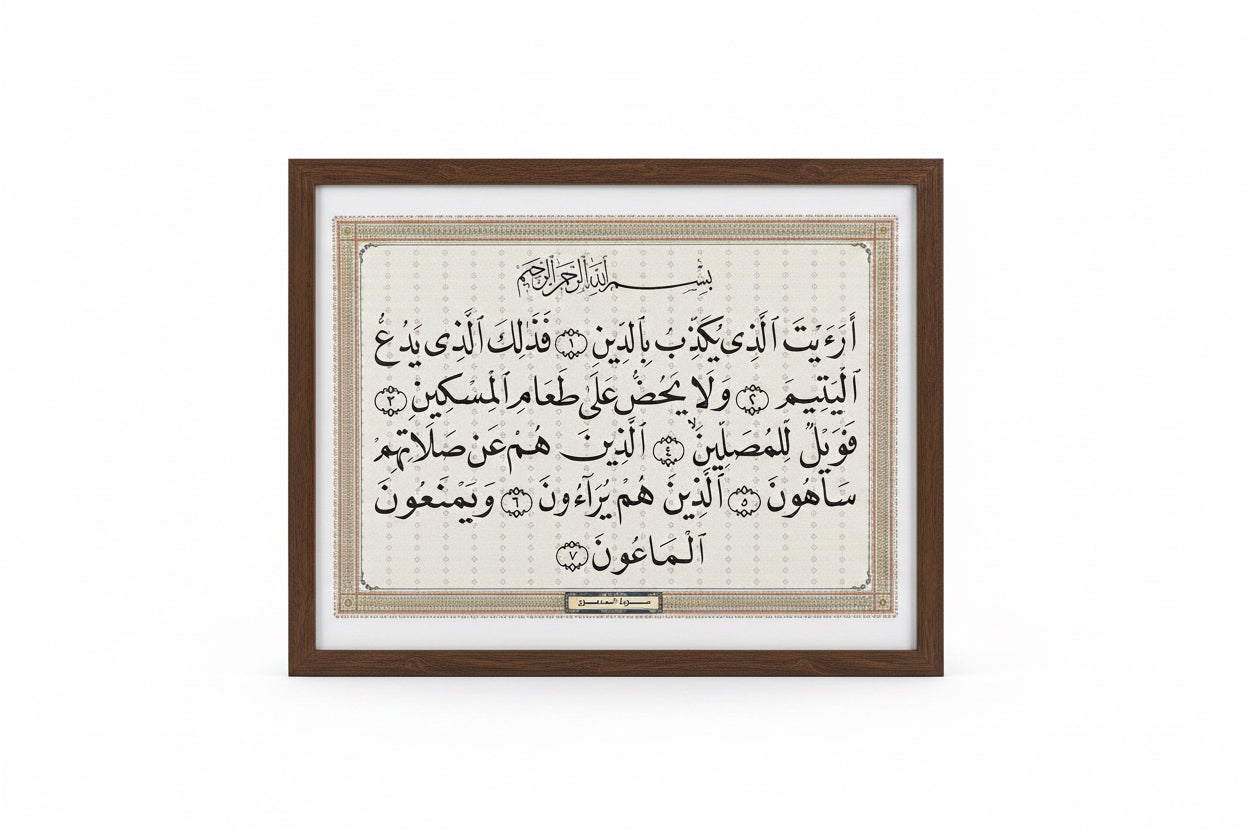 بِسْمِ اللَّهِ الرَّحْمَٰنِ الرَّحِيمِ
أَرَءَيْتَ ٱلَّذِى يُكَذِّبُ بِٱلدِّينِ ١ فَذَٰلِكَ ٱلَّذِى يَدُعُّ
ٱلْيَتِيمَ ٢ وَلَا يَحُضُّ عَلَىٰ طَعَامِ ٱلْمِسْكِينِ ٣
فَوَيْلٌ لِّلْمُصَلِّينَ ٤ ٱلَّذِينَ هُمْ عَن صَلَاتِهِمْ
سَاهُونَ ٥ ٱلَّذِينَ هُمْ يُرَآءُونَ ٦ وَيَمْنَعُونَ
ٱلْمَاعُونَ ٧